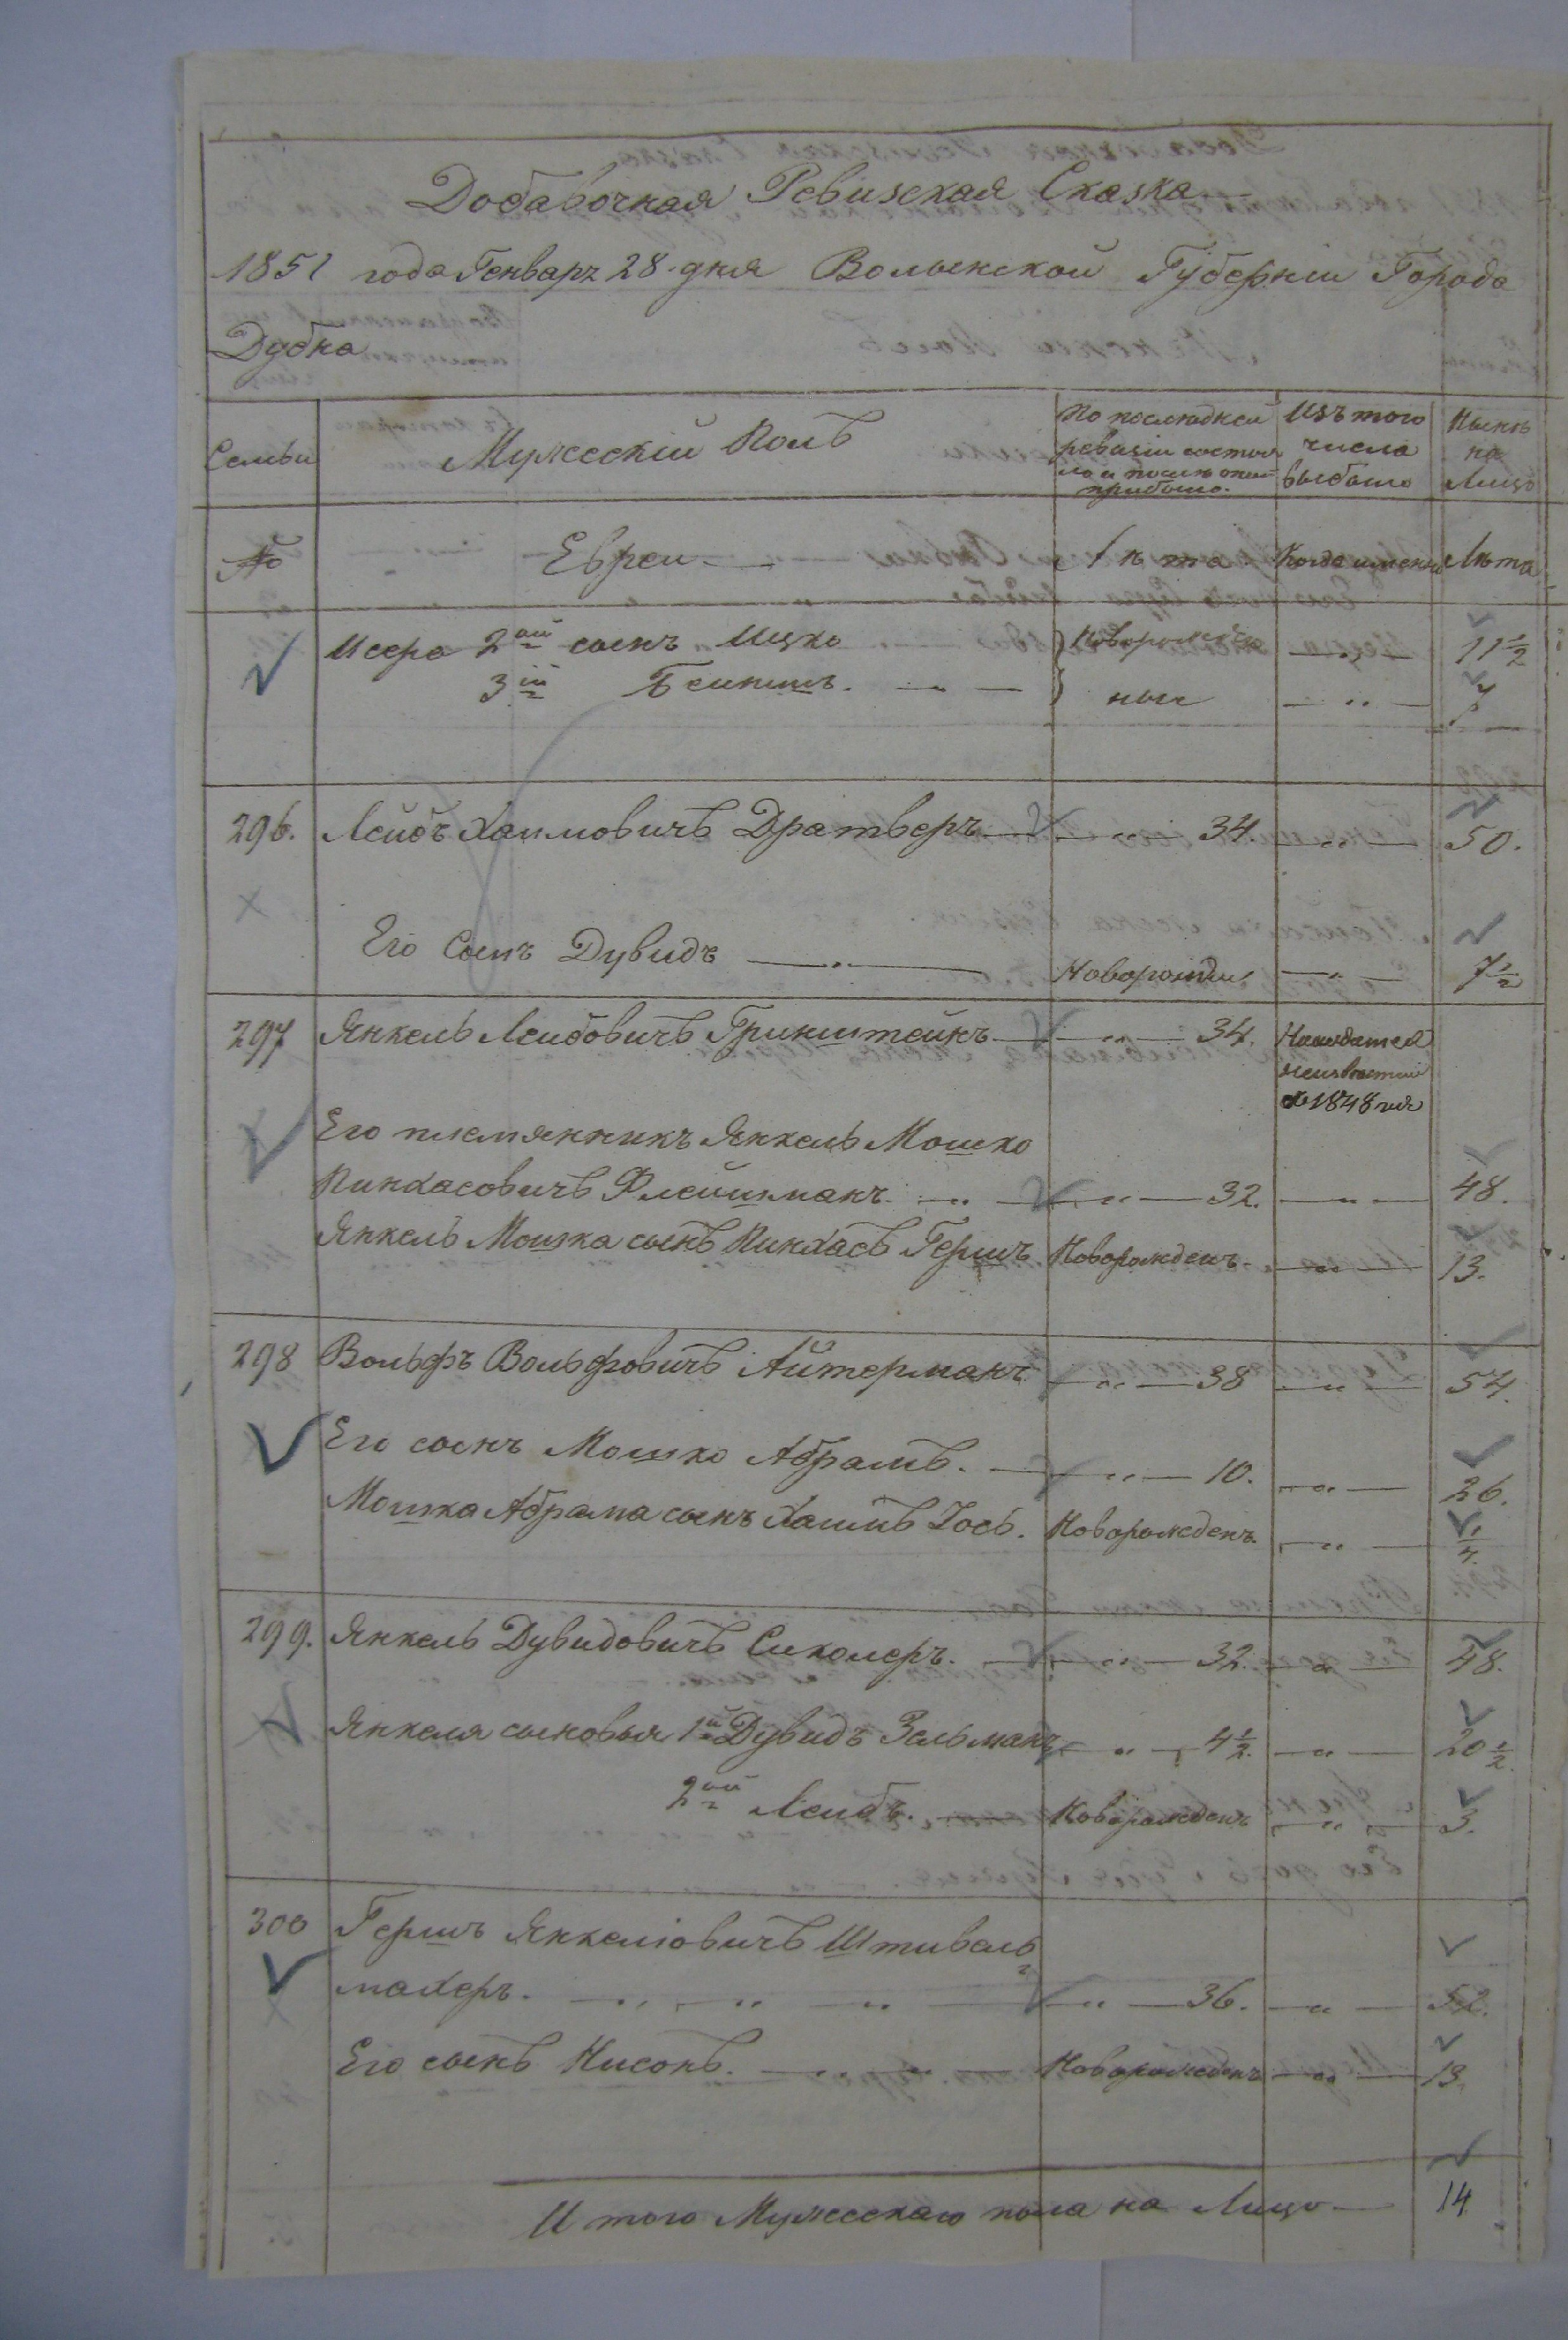 Добавочная Ревизская Сказка
1851 года Генваря 28 дня Волынской Губернии Города
Дубна
Семьи | Мужеский Полъ | По последней ревизіи состояло и после оной прибыло. | Изъ того числа выбыло | Ныне на Лицо
№ | Евреи | Лета | Когда именно | Лета
Исера 2ой сынъ Ицко | Новорожден | 11 1/2
3ій Бейнишъ. | ные | 7
296. Лейбъ Хаимовичъ Дратверъ | 34. | 50.
Его Сынъ Дувидъ | Новорожден | 7 1/2
297 Янкель Лейбовичъ Гринштейнъ | 34. | 1848 года
Его племянникъ Янкель Мошко
Пинхасовичъ Флейшманъ | 32. | 48.
Янкель Мошка сынъ Пинхасъ Гершъ | Новорожденъ | 13.
298 Вольфъ Вольфовичъ Айтерманъ | 38 | 54.
Его сынъ Мошко Абрамъ. | 10. | 26.
Мошка Абрама сынъ Хаимъ Іось. | Новорожденъ. | 1/4.
299. Янкель Дувидовичъ Сиколеръ. | 32. | 48.
Янкеля сыновья 1й Дувидъ Зельманъ | 4 1/2. | 20 1/2.
2ой Лейбъ. | Новорожденъ | 3.
300 Гершъ Янкеліовичъ Штивель
махеръ. | 36. | 52.
Его сынъ Нисонъ. | Новорожденъ | 13.
Итого Мужескаго пола на Лицо | 14